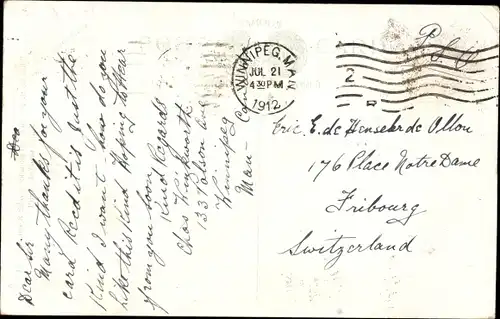 Dear Sir
Many thanks for your
card Recd it is Just the
Kind I want how do you
like this Kind Hoping to Hear
from you soon
Kind Regards
Chas Hinkworth
133 Polson Ave
Winnipeg
Man- Can
WINNIPEG, MAN
JUL 21
4 30 PM
1912
2
Eric E. de Henseler de Ollon
176 Place Notre Dame
Fribourg
Switzerland